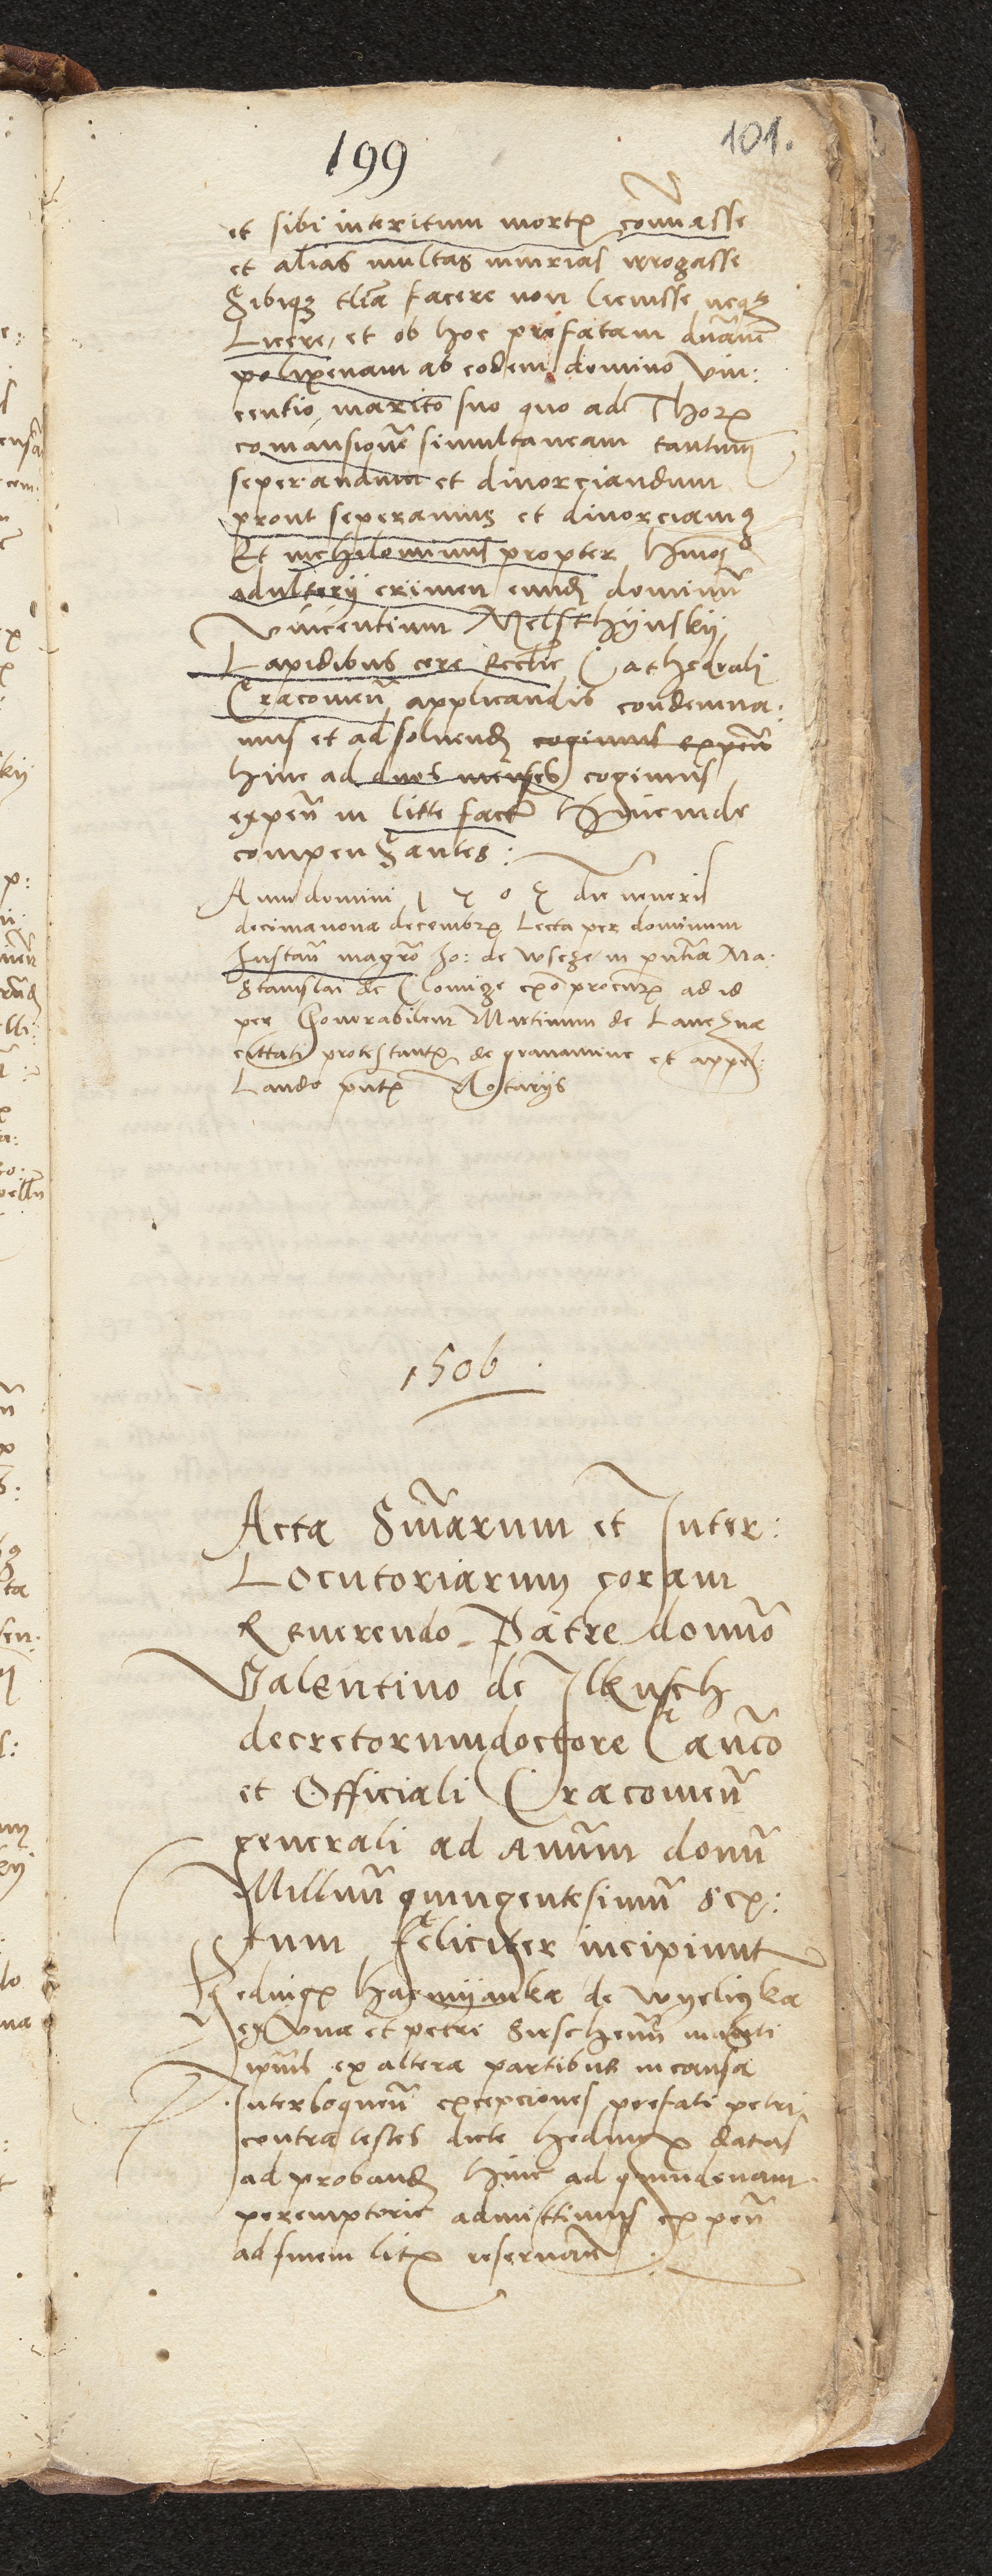 199
101.
et sibi interitum mortꝭ com̄inasse
et alias multas iniurias irrogasse
Sibiqꝫ tl̄ia facere non licuisse neqꝫ
Licere, et ob hoc prefatam dn̄am
polixenam ab eodem domino Vin:
centio marito suo quo ad Thorꝭ
comansionē simultaneam tantum
seperandum et diuorciandum
prout seperamus et diuorciamꝰ
Et nichilominus propter hm̄oi
adulterij crimen eundꝭ dominū
Vincentium Melsthÿnskij
Lapidibus cere Ecclīe Cathedrali
Cracouien̄ applicandis condemna:
mus et ad soluendꝭ cogimus expen̄
hinc ad duos menses cogimus
expen̄ in litte fact̄ Hincinde
compensantes:
Anno domini 1505 die veneris
decimanona decembrꝭ Lecta per dominum
Instan̄ magr̄o Jo: de Wseze in pn̄tia Ma:
Stanislai de Clomize ex o procurꝭ ad id
per Honorabilem Martinum de Lanczna
cittati protestantꝭ de grauamine et appel:
Lando pn̄tꝭ Notarijs
1506.
Acta Sn̄iarum et Inter:
Locutoriarum coram
Reuerendo Patre domīo
Valentino de Ilkusch
decretorum doctore Can̄co
et Officiali Cracouien̄
generali ad annum domī
Millm̄ quingentesimū Sex:
tum feliciter incipiunt
Heduigꝭ Harnÿanka de Wyeliczka
ex vna et petri Sirschenn̄ mariti
ip̄ius ex altera partibus in causa
Interloquen̄ excepciones prefati petri
contra testes dicte Heduigꝭ datas
ad probandꝭ hinc ad quindenam
peremptorie admittimus expen̄
ad finem litꝭ reseruan̄